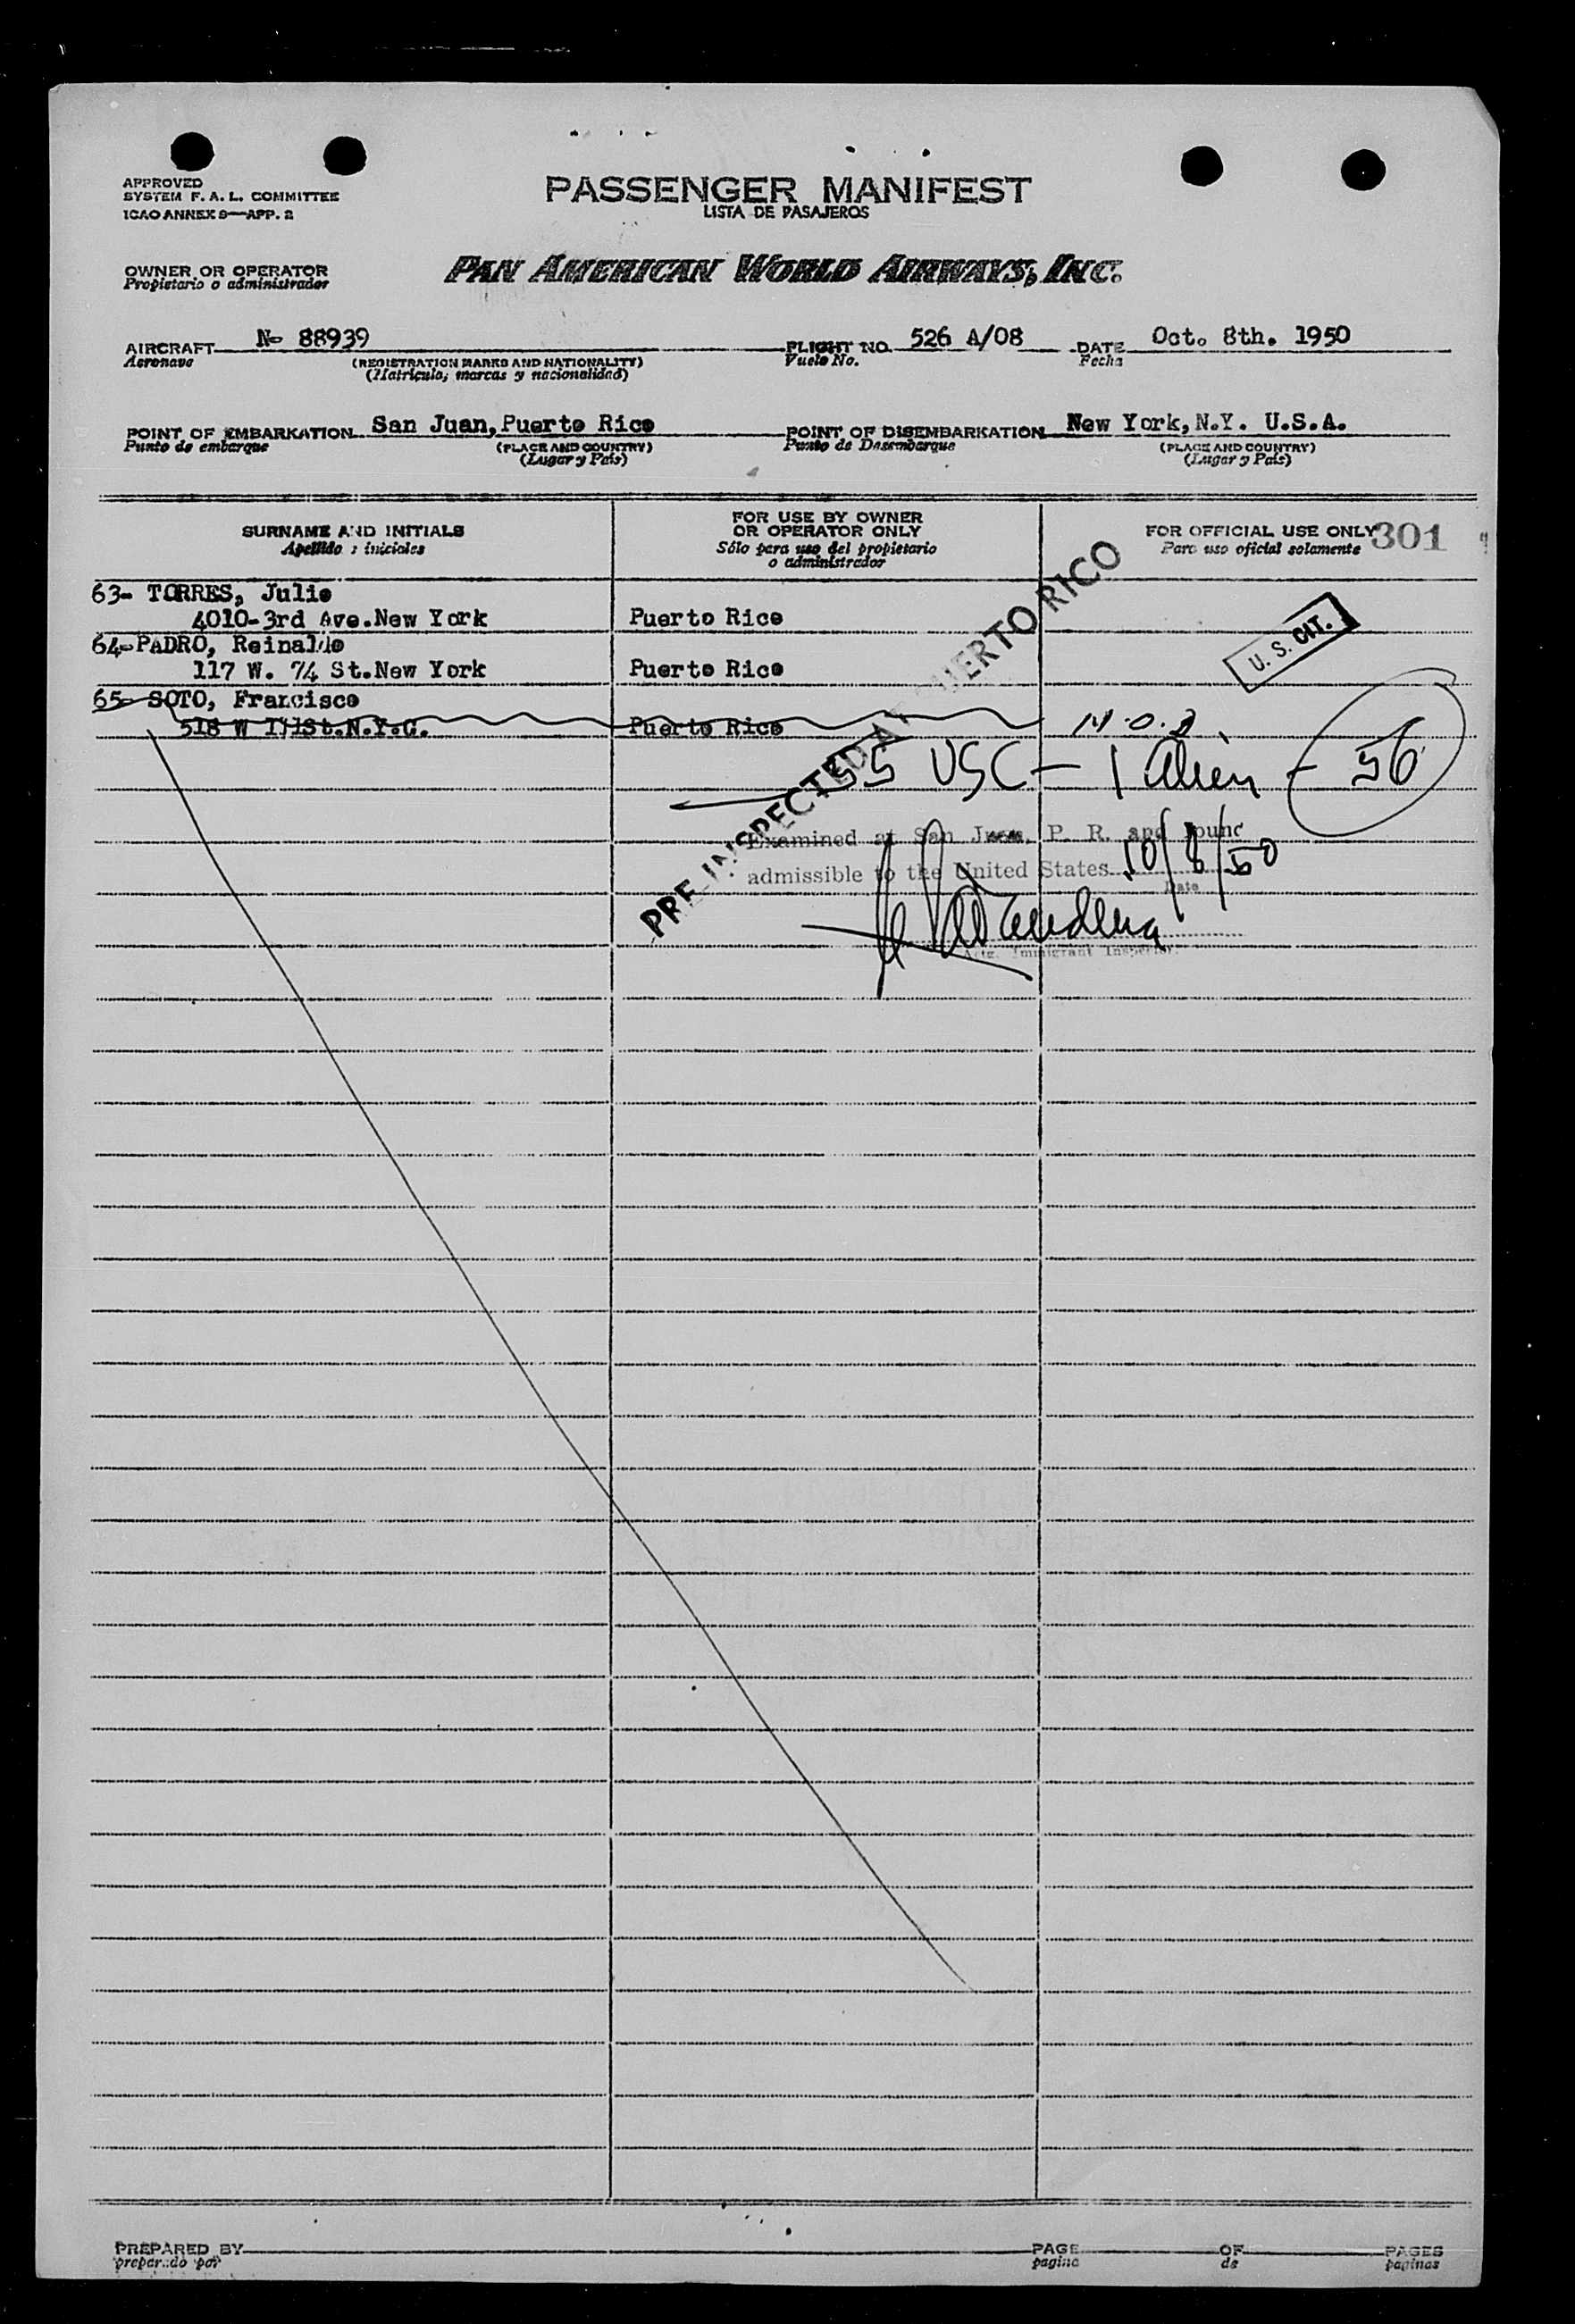 APPROVED
SYSTEM F. A. L. COMMITTEE
ICAO ANNEX 9—APP. 2
PASSENGER MANIFEST
LISTA DE PASAJEROS
OWNER OR OPERATOR
Propietario o administrador
PAN AMERICAN WORLD AIRWAYS, INC.
AIRCRAFT N- 88939 FLIGHT NO. 526 A/08 DATE Oct. 8th. 1950
Aeronave (REGISTRATION MARKS AND NATIONALITY) Vuelo No. Fecha
(Matricula, marcas y nacionalidad)
POINT OF EMBARKATION San Juan, Puerto Rico POINT OF DISEMBARKATION New York, N.Y. U.S.A.
Punto de embarque (PLACE AND COUNTRY) Punto de Desembarque (PLACE AND COUNTRY)
(Lugar y País) (Lugar y País)
SURNAME AND INITIALS
Apellido e iniciales
FOR USE BY OWNER
OR OPERATOR ONLY
Sólo para uso del propietario
o administrador
FOR OFFICIAL USE ONLY 301
Para uso oficial solamente
63- TORRES, Julio
4010-3rd Ave. New York Puerto Rico
64- PADRO, Reinaldo
117 W. 74 St. New York Puerto Rico
U. S. CIT.
65- SOTO, Francisco
518 W St. N.Y.C. Puerto Rico N.O.B.
55 USC - 1 Alien - 56
PRE-INSPECTED AT PUERTO RICO
Examined at San Juan, P. R. and found
admissible to the United States 10/8/50
Date
Actg. Immigrant Inspector.
PREPARED BY PAGE OF PAGES
preparado por pagina de paginas